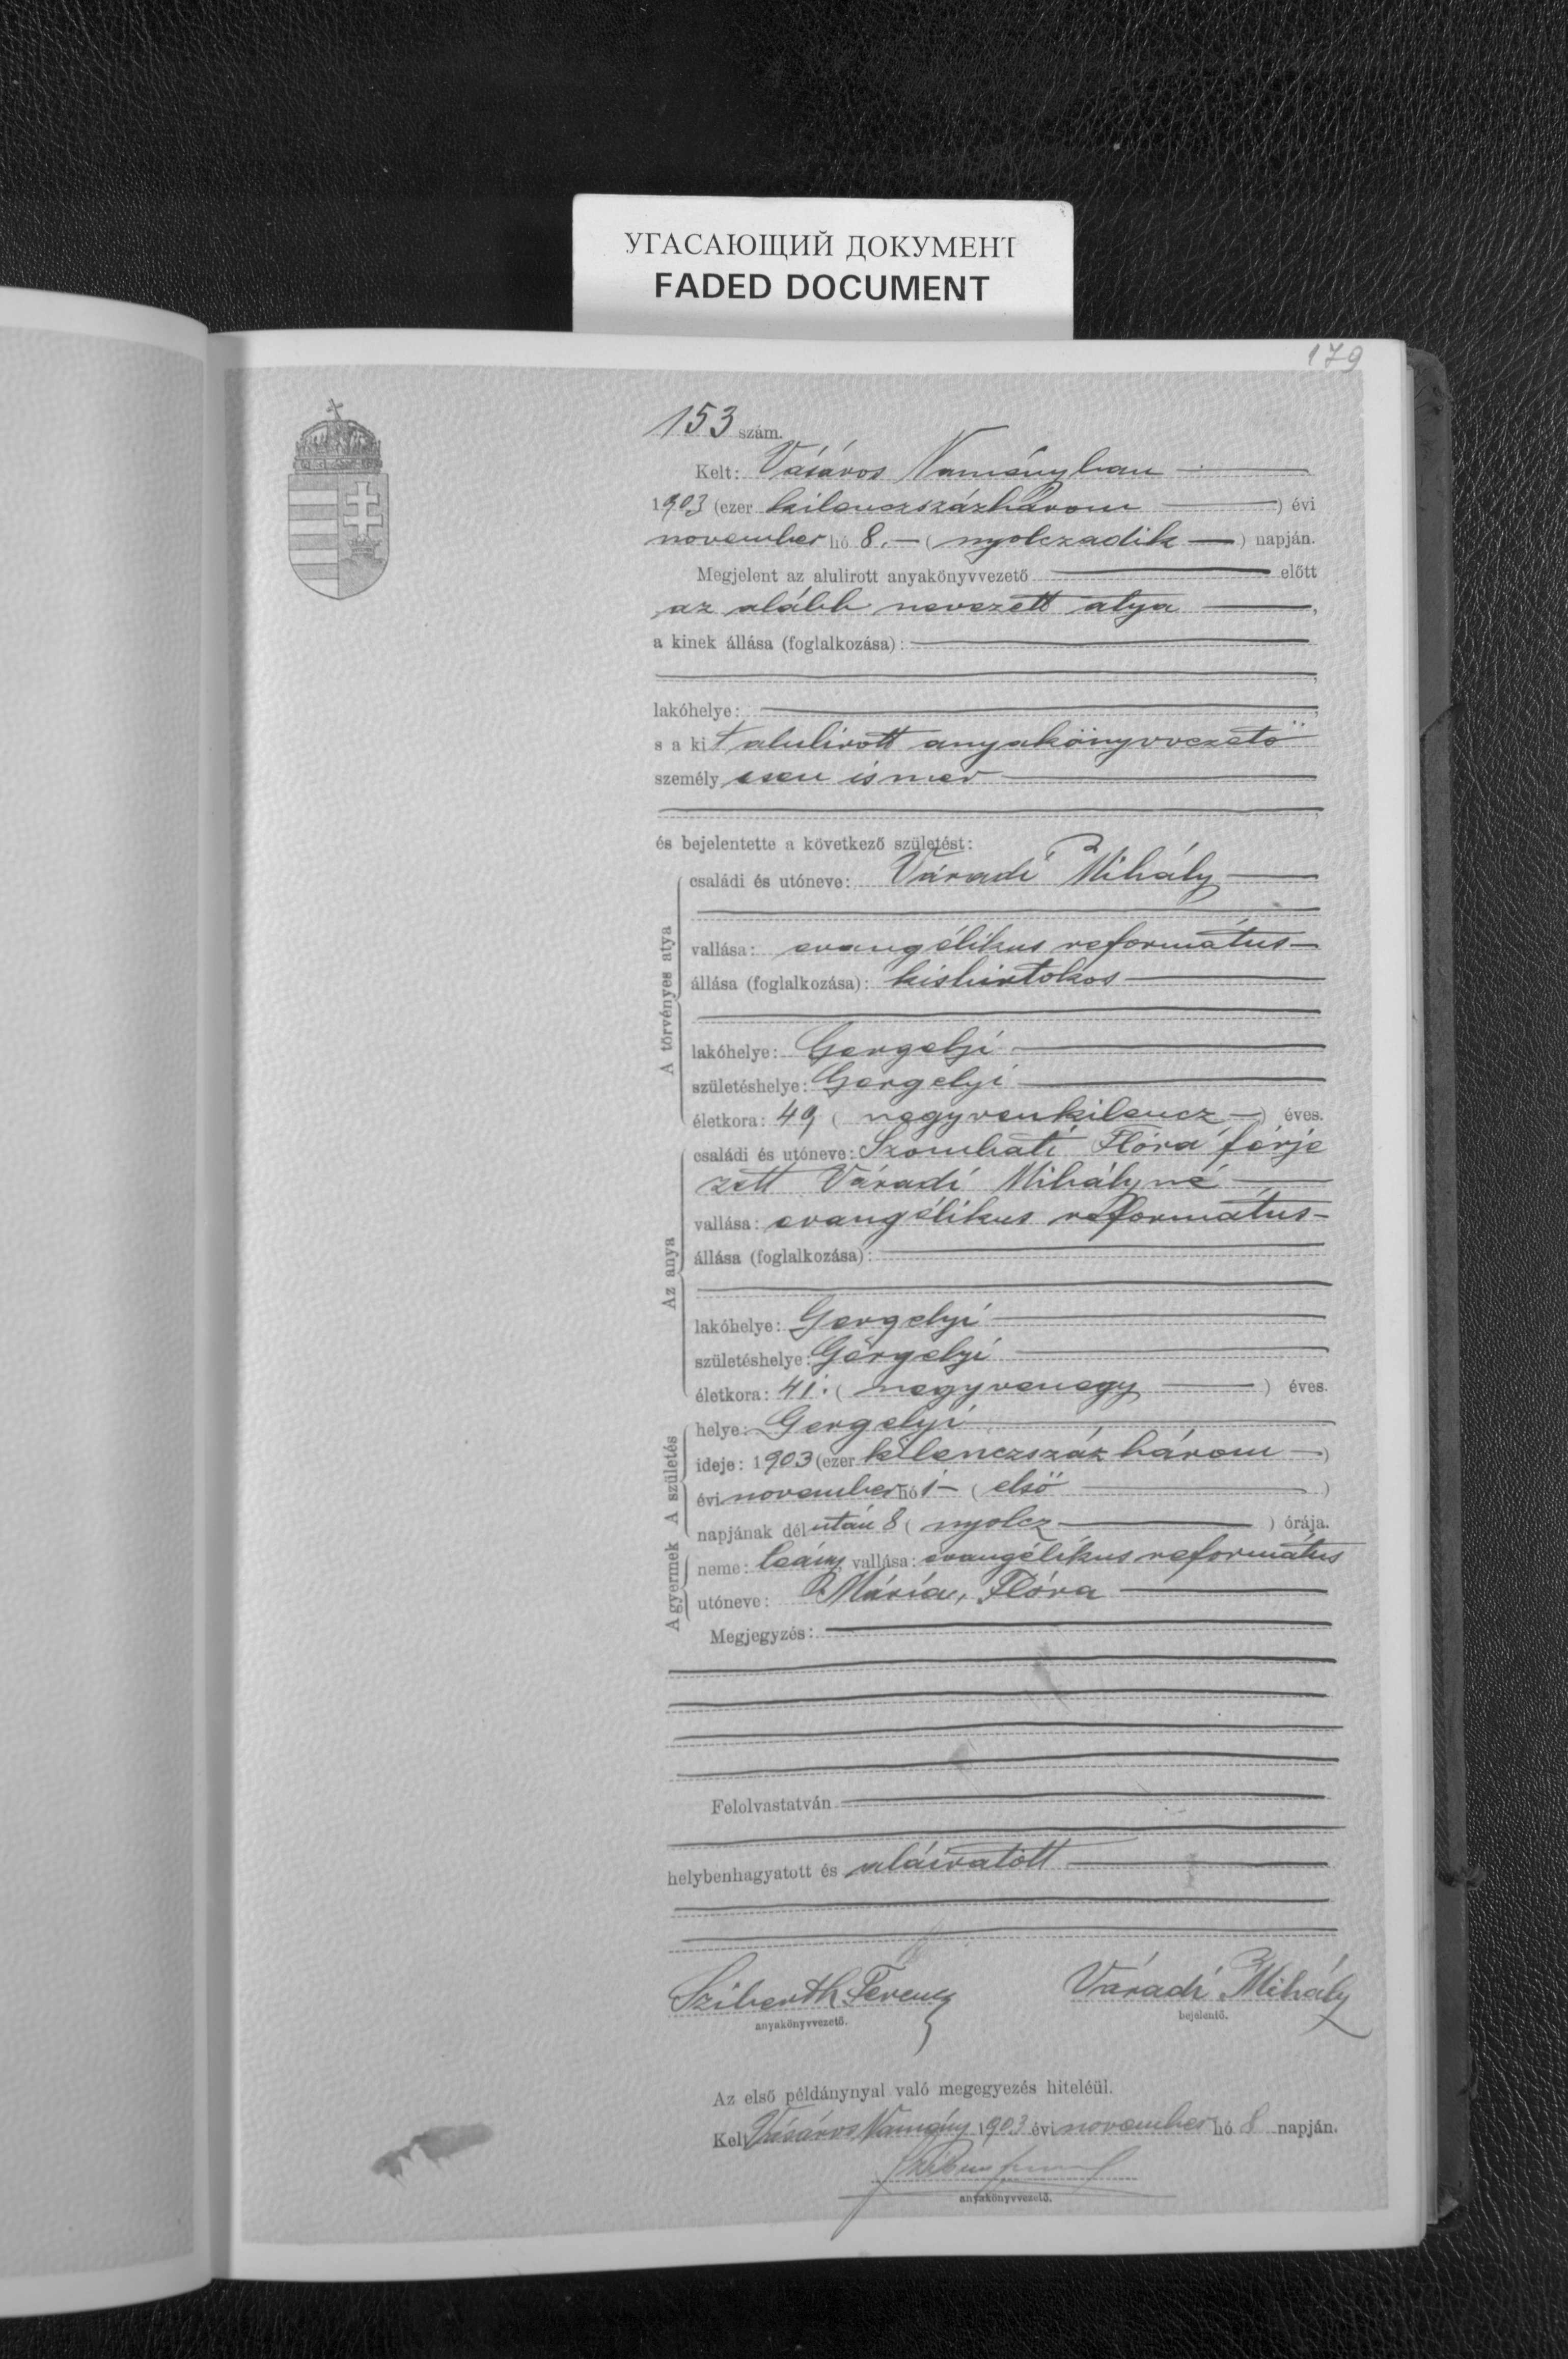 УГАСАЮЩИЙ ДОКУМЕНТ
FADED DOCUMENT
179
153 szám.
Kelt: Vásáros Naményban
1903 (ezer kilenczszázhárom ) évi
november hó 8. ( nyolczadik ) napján.
Megjelent az alulirott anyakönyvvezető előtt
az alább nevezett atya ,
a kinek állása (foglalkozása):
lakóhelye:
s a kit alulirott anyakönyvvezető
személyesen ismer
és bejelentette a következő születést:
A törvényes atya
családi és utóneve: Váradi Mihály
vallása: evangélikus református
állása (foglalkozása): kisbirtokos
lakóhelye: Gergelyi
születéshelye: Gergelyi
életkora: 49 ( negyvenkilencz ) éves.
Az anya
családi és utóneve: Szombati Flóra férje
zett Váradi Mihályné
vallása: evangélikus református
állása (foglalkozása):
lakóhelye: Gergelyi
születéshelye: Gergelyi
életkora: 41. ( negyvenegy ) éves.
A születés
helye: Gergelyi
ideje: 1903 (ezer kilenczszáz három )
évi november hó 1 ( első )
napjának délután 8 ( nyolcz ) órája.
A gyermek
neme: leány, vallása: evangélikus református
utóneve: Mária, Flóra
Megjegyzés:
Felolvastatván
helybenhagyatott és aláiratott
Sziberth Ferencz Váradi Mihály
anyakönyvvezető. bejelentő.
Az első példánynyal való megegyezés hiteléül.
Kelt Vásáros Namény 1903 évi november hó 8 napján.
anyakönyvvezető.